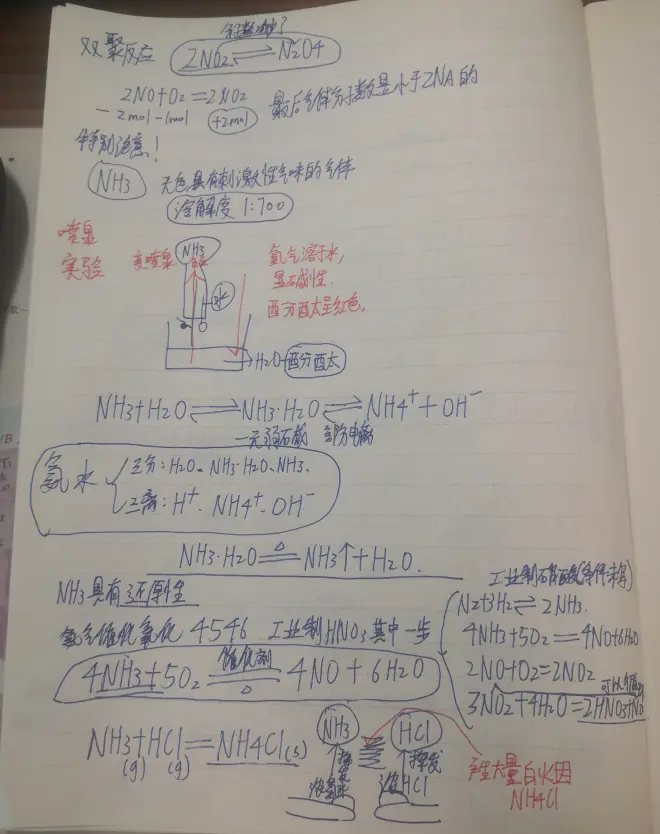 分子数减少了
双聚反应 2NO2⇌N2O4
2NO+O2=2NO2 最后气体分子数是小于2NA的
-2mol-1mol +2mol
特别注意!
NH3 无色具有刺激性气味的气体
溶解度1:700
喷泉
实验
变喷泉 NH3
水
氨气溶于水,
显碱性.
酉分酉太呈红色。
H2O 酉分酉太
NH3+H2O⇌NH3·H2O⇌NH4⁺+OH⁻
一元弱碱 部分电离
氨水
三分:H2O、NH3·H2O、NH3.
三离:H⁺.NH4⁺.OH⁻
NH3·H2O=△=NH3↑+H2O.
NH3具有还原性
氨气催化氧化 4546 工业制HNO3其中一步
4NH3+5O2=催化剂△=4NO+6H2O
工业制硝酸(条件未写)
N2+3H2⇌2NH3.
4NH3+5O2=4NO+6H2O
2NO+O2=2NO2
3NO2+4H2O=2HNO3+NO
NH3+HCl=NH4Cl(s)
(g) (g)
NH3 HCl
挥发 挥发
浓氨水 浓HCl
产生大量白火因
NH4Cl